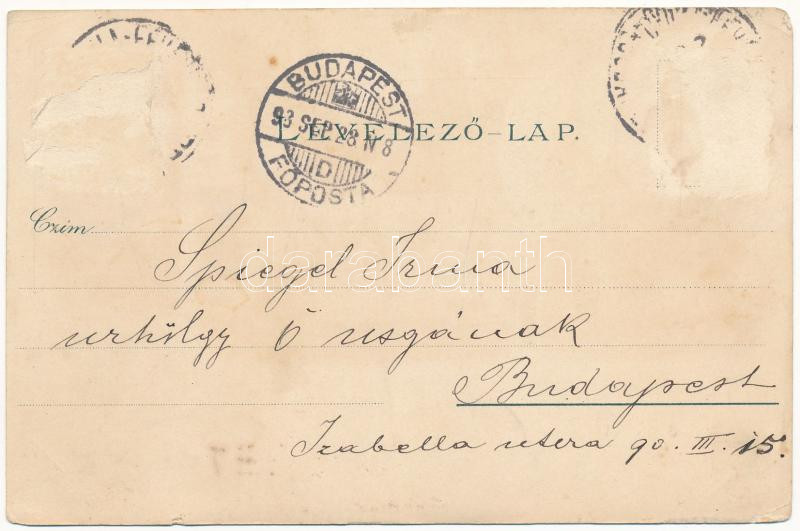 BUDAPEST
93 SEP 28 N 8
D
FŐPOSTA
LEVELEZŐ-LAP.
Czim
Spiegel Irma
darabanth
urhölgy Ő nsgának
Budapest
Izabella utcza 90. III. 15.